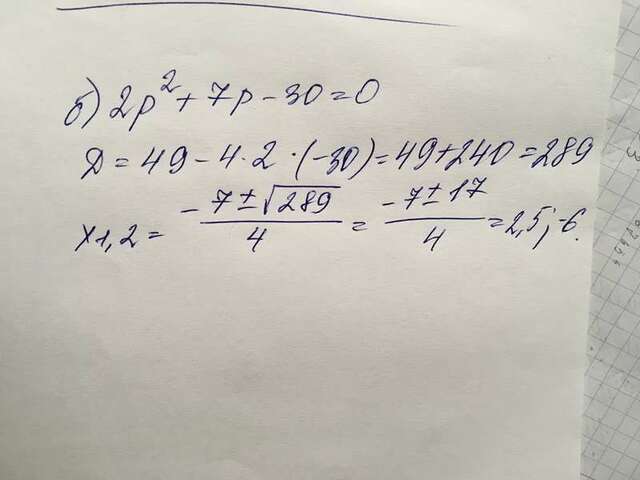 б) 2p² + 7p - 30 = 0
Д = 49 - 4 · 2 · (-30) = 49 + 240 = 289
x1,2 = (-7 ± √289)/4 = (-7 ± 17)/4 = 2,5; -6.